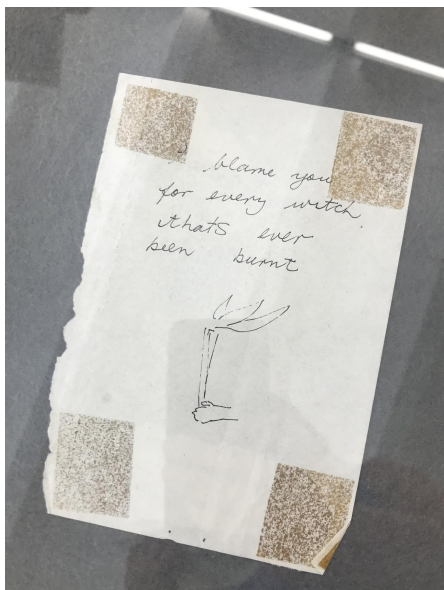 blame you
for every witch
thats ever
been burnt